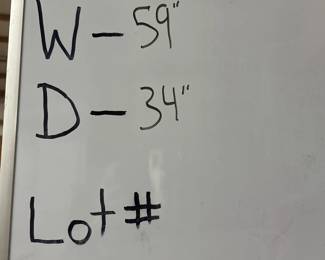 W - 59"
D - 34"
Lot #